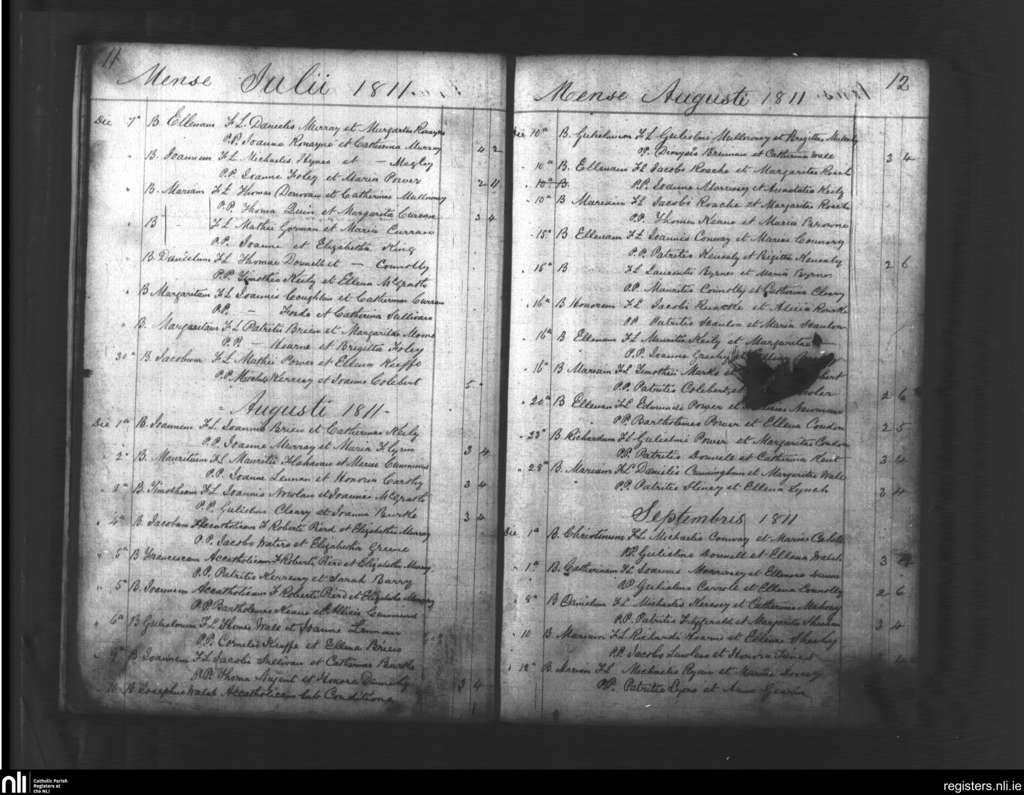 11
Mense Julii 1811
Die 7ª B. Ellenam F.L. Danielis Murray et Margaritæ Ronayne
P.P. Joanne Ronayne et Catherina Murray 4 2
B. Joannem F.L. Michaelis Hynes et — Magley
P.P. Joanne Foley et Maria Power 2 11
B. Mariam F.L. Thomæ Donovan et Catherinæ Mullowney
P.P. Thoma Quin et Margarita Curran 3 4
B F.L. Mathei Gorman et Maria Curran
P.P. Joanne et Elizabetha King
B Danielum F.L. Thomae Donnell et — Connolly
P.P. Timotheo Kiely et Ellena McGrath
B Margaritam F.L. Joannis Coughlan et Catherinæ Curran
P.P. — Forde et Catherina Sullivan
B. Margaritam F.L. Patritii Brien et Margaritæ
P.P. — Hearne et Brigitta Foley
30ª B Jacobum F.L. Mathei Power et Ellena Keeffe
P.P. Kersey et Joanna Colebert 5
Augusti 1811
Die 1ª B. Joannem F.L. Joannis Brien et Catherinæ Kiely
P.P. Joanne Murray et Maria Flynn 3 4
2ª B. Mauritium F.L. Mauritii Flahavan et Mariæ Cummins
P.P. Joanne Lennan et Honora Carthy 3 4
B Timotheum F.L. Joannis Nowlan et Joannæ McGrath
P.P. Gulielmo Cleary et Joanna Burke 3 4
4ª B Jacobum Accatholicum F Roberti Bird et Elizabetha Murray
P.P. Jacobo Waters et Elizabetha Greene
5ª B Franciscum Accatholicum F Roberti Bird et Elizabetha Murray
P.P. Patritio Kersey et Sarah Barry
5 B Joannem Accatholicum F Roberti Bird et Elizabetha Murray
P.P. Bartholomeo Keane et Alicia Cummins
6ª B Gulielmum F.L. Thomæ Wall et Joannæ Lennan
P.P. Cornelio Keeffe et Ellena Brien
9ª B Joannem F.L. Jacobi Sullivan et Catherinæ Burke
P.P. Thoma Nugent et Honora Dunphy 3 4
10ª B Josephus Walsh Accatholicum Sub Conditione
12
Mense Augusti 1811
Die 10ª B. Gulielmum F.L. Gulielmi Mullowney et Brigittæ
P.P. Dionysio Brennan et Catherina Wall 3 4
10ª B. Ellenam F.L. Jacobi Roache et Margaritæ Roach
10ª B P.P. Joanne Morrissey et Anastatia Kiely
10ª B Mariam F.L. Jacobi Roache et Margaritæ Roach
P.P. Thoma Keane et Maria Browne
15ª B Ellenam F.L. Joannis Conway et Mariæ Connory
P.P. Patritio Kenealy et Brigitta Kenealy 2 6
16ª B F.L. Laurentii Byrnes et Maria Byrnes
P.P. Mauritio Connolly et Catherina Cleary
16ª B Honoram F.L. Jacobi Rourke et Alicia Rourke
P.P. Patritio Scanlon et Maria Scanlon
16ª B Ellenam F.L. Mauritii Kiely et Margaritæ
P.P. Joanne
16ª B Mariam F.L. Timothei
P.P. Patritio Colebert et 2 6
20ª B Ellenam F.L. Edmundi Power et Newman
P.P. Bartholomeo Power et Ellena Condon 2 5
23ª B Richardum F.L. Gulielmi Power et Margaritæ Condon
P.P. Patritio Donnell et Catherina Hunt 3 4
28ª B Mariam F.L. Danielis Cunningham et Margaritæ Wall
P.P. Patritio Sleney et Ellena Lynch 3 4
Septembris 1811
Die 1ª B. Christinum F.L. Michaelis Conway et Mariæ
P.P. Gulielmo Donnell et Ellena Walsh 3 4
1ª B. Catherinam F.L. Joannis Morrissey et Ellenora
P.P. Gulielmo Carrole et Ellena Connolly 2 6
8ª B Danielum F.L. Michaelis Kersey et Catherinæ Mahony
P.P. Patritio Fitzgerald et Margarita Shannon 3 4
10 B Mariam F.L. Richardi Hearne et Ellenæ Sheehy
P.P. Jacobo Lawlor et Honora
12ª B Mariam F.L. Michaelis Ryan et Mariæ
P.P. Patritio Lyons et Anna
nli Catholic Parish Registers at the NLI
registers.nli.ie